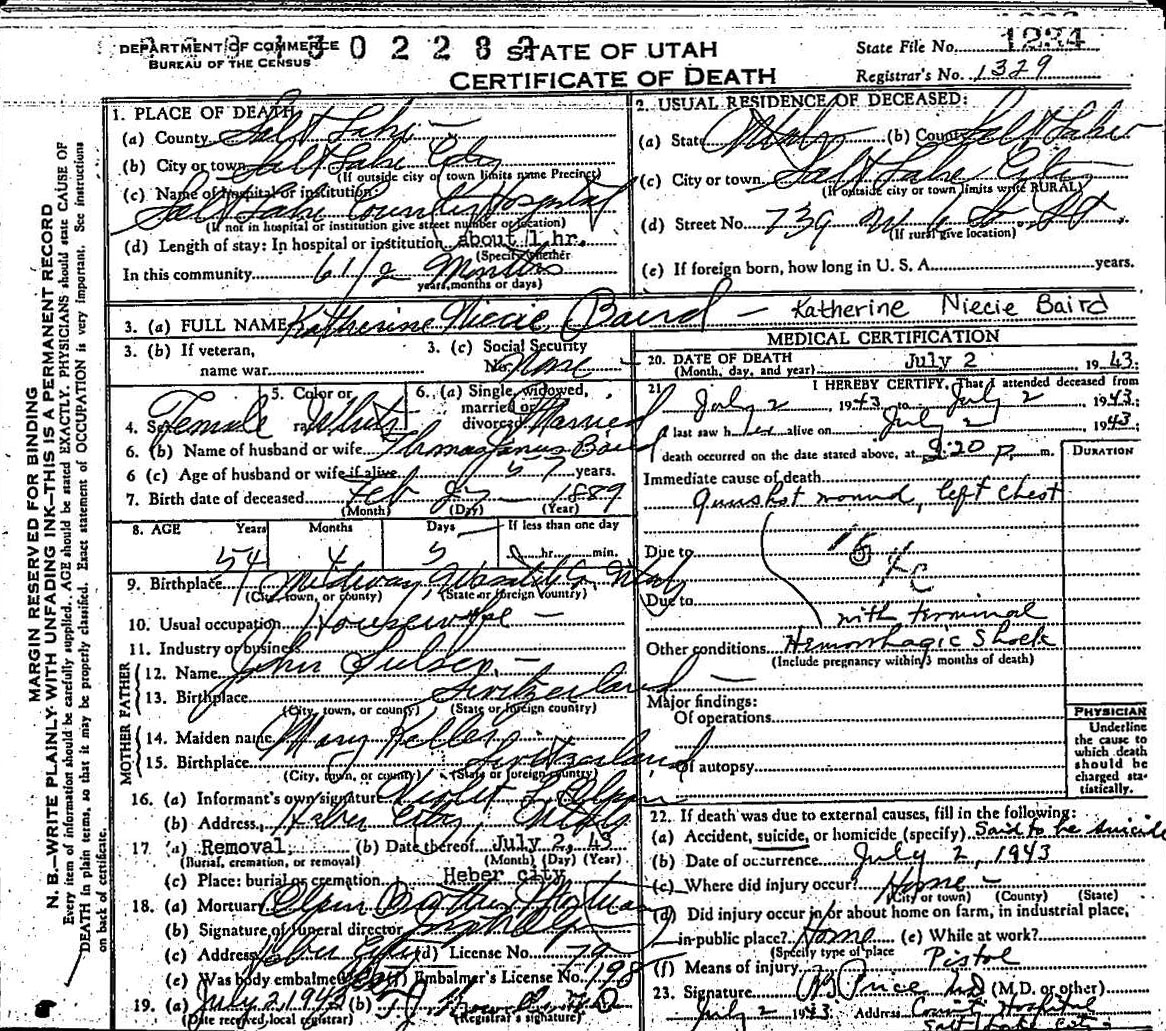 DEPARTMENT OF COMMERCE
BUREAU OF THE CENSUS
STATE OF UTAH
CERTIFICATE OF DEATH
State File No. 1234
Registrar's No. 1329
MARGIN RESERVED FOR BINDING
N. B.—WRITE PLAINLY WITH UNFADING INK—THIS IS A PERMANENT RECORD
Every item of information should be carefully supplied. AGE should be stated EXACTLY. PHYSICIANS should state CAUSE OF
DEATH in plain terms, so that it may be properly classified. Exact statement of OCCUPATION is very important. See instructions
on back of certificate.
1. PLACE OF DEATH:
(a) County Salt Lake
(b) City or town Salt Lake City
(If outside city or town limits name Precinct)
(c) Name of hospital or institution:
Salt Lake County Hospital
(If not in hospital or institution give street number or location)
(d) Length of stay: In hospital or institution about 1 hr.
(Specify whether
In this community 6 1/2 Months
years, months or days)
2. USUAL RESIDENCE OF DECEASED:
(a) State Utah (b) County Salt Lake
(c) City or town Salt Lake City
(If outside city or town limits write RURAL)
(d) Street No. 739
(If rural give location)
(e) If foreign born, how long in U. S. A. years.
3. (a) FULL NAME Katherine Niecie Baird — Katherine Niecie Baird
3. (b) If veteran,
name war
3. (c) Social Security
No. None
4. Sex Female
5. Color or
race White
6. (a) Single, widowed,
married or
divorced Married
6. (b) Name of husband or wife Thomas James Baird
6 (c) Age of husband or wife if alive 57 years.
7. Birth date of deceased Feb 27 1889
(Month) (Day) (Year)
8. AGE Years Months Days If less than one day
54 4 5 hr. min.
9. Birthplace Midway, Wasatch Co, Utah
(City, town, or county) (State or foreign country)
10. Usual occupation Housewife
11. Industry or business
FATHER
12. Name John
13. Birthplace Switzerland
(City, town, or county) (State or foreign country)
MOTHER
14. Maiden name Mary Keller
15. Birthplace Switzerland
(City, town, or county) (State or foreign country)
16. (a) Informant's own signature Violet L. Olpin
(b) Address Heber City, Utah
17 (a) Removal (b) Date thereof July 2, 43
(Burial, cremation, or removal) (Month) (Day) (Year)
(c) Place: burial or cremation Heber city
18. (a) Mortuary Olpin Brothers Mortuary
(b) Signature of funeral director
(c) Address Heber City (d) License No. 79
(e) Was body embalmed (f) Embalmer's License No. 198
19. (a) July 2, 1943 (b)
(Date received local registrar) (Registrar's signature)
MEDICAL CERTIFICATION
20. DATE OF DEATH
(Month, day, and year) July 2 19 43:
21. I HEREBY CERTIFY, That I attended deceased from
July 2, 1943 to July 2 1943:
I last saw her alive on July 2 1943:
death occurred on the date stated above, at 9:20 P. m.
DURATION
Immediate cause of death
gunshot wound, left chest
Due to
Due to
with terminal
Other conditions Hemorrhagic Shock
(Include pregnancy within 3 months of death)
Major findings:
Of operations
Of autopsy
PHYSICIAN
Underline
the cause to
which death
should be
charged sta-
tistically.
22. If death was due to external causes, fill in the following:
(a) Accident, suicide, or homicide (specify) Said to be suicide
(b) Date of occurrence July 2, 1943
(c) Where did injury occur? Home
(City or town) (County) (State)
(d) Did injury occur in or about home on farm, in industrial place,
in public place? Home (e) While at work?
(Specify type of place
(f) Means of injury Pistol
23. Signature Price MD (M.D. or other)
July 2 1943 Address County Hospital
Salt Lake City